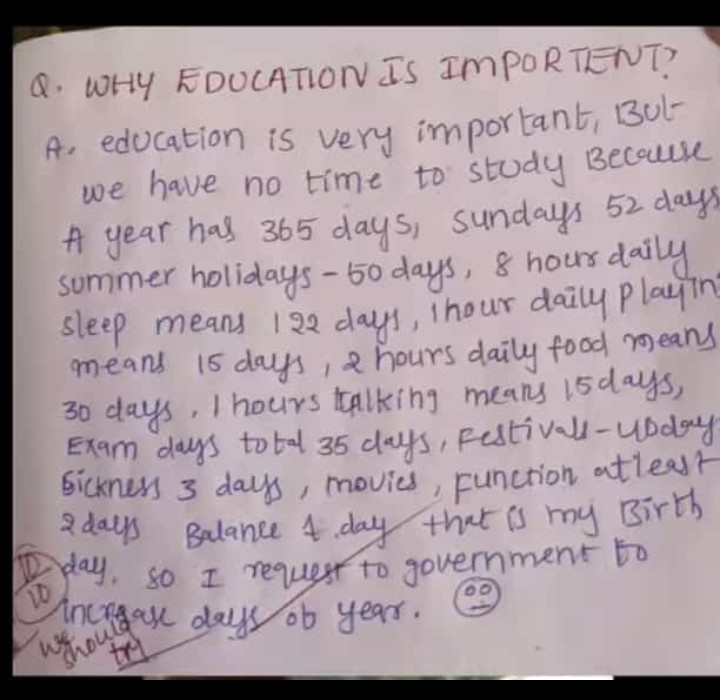 Q. WHY EDUCATION IS IMPORTENT?
A. education is very important, But
we have no time to study Because
A year has 365 days, sundays 52 days
summer holidays - 50 days, 8 hours daily
sleep means 122 days, 1 hour daily playin
means 15 days, 2 hours daily food means
30 days, 1 hours talking means 15 days,
Exam days total 35 days, Festivals - 40day
Sickness 3 days, movies, Function at least
2 days Balance 1. day that is my Birth
day. so I request to government to
increase days ob year.
10
10
we should
try